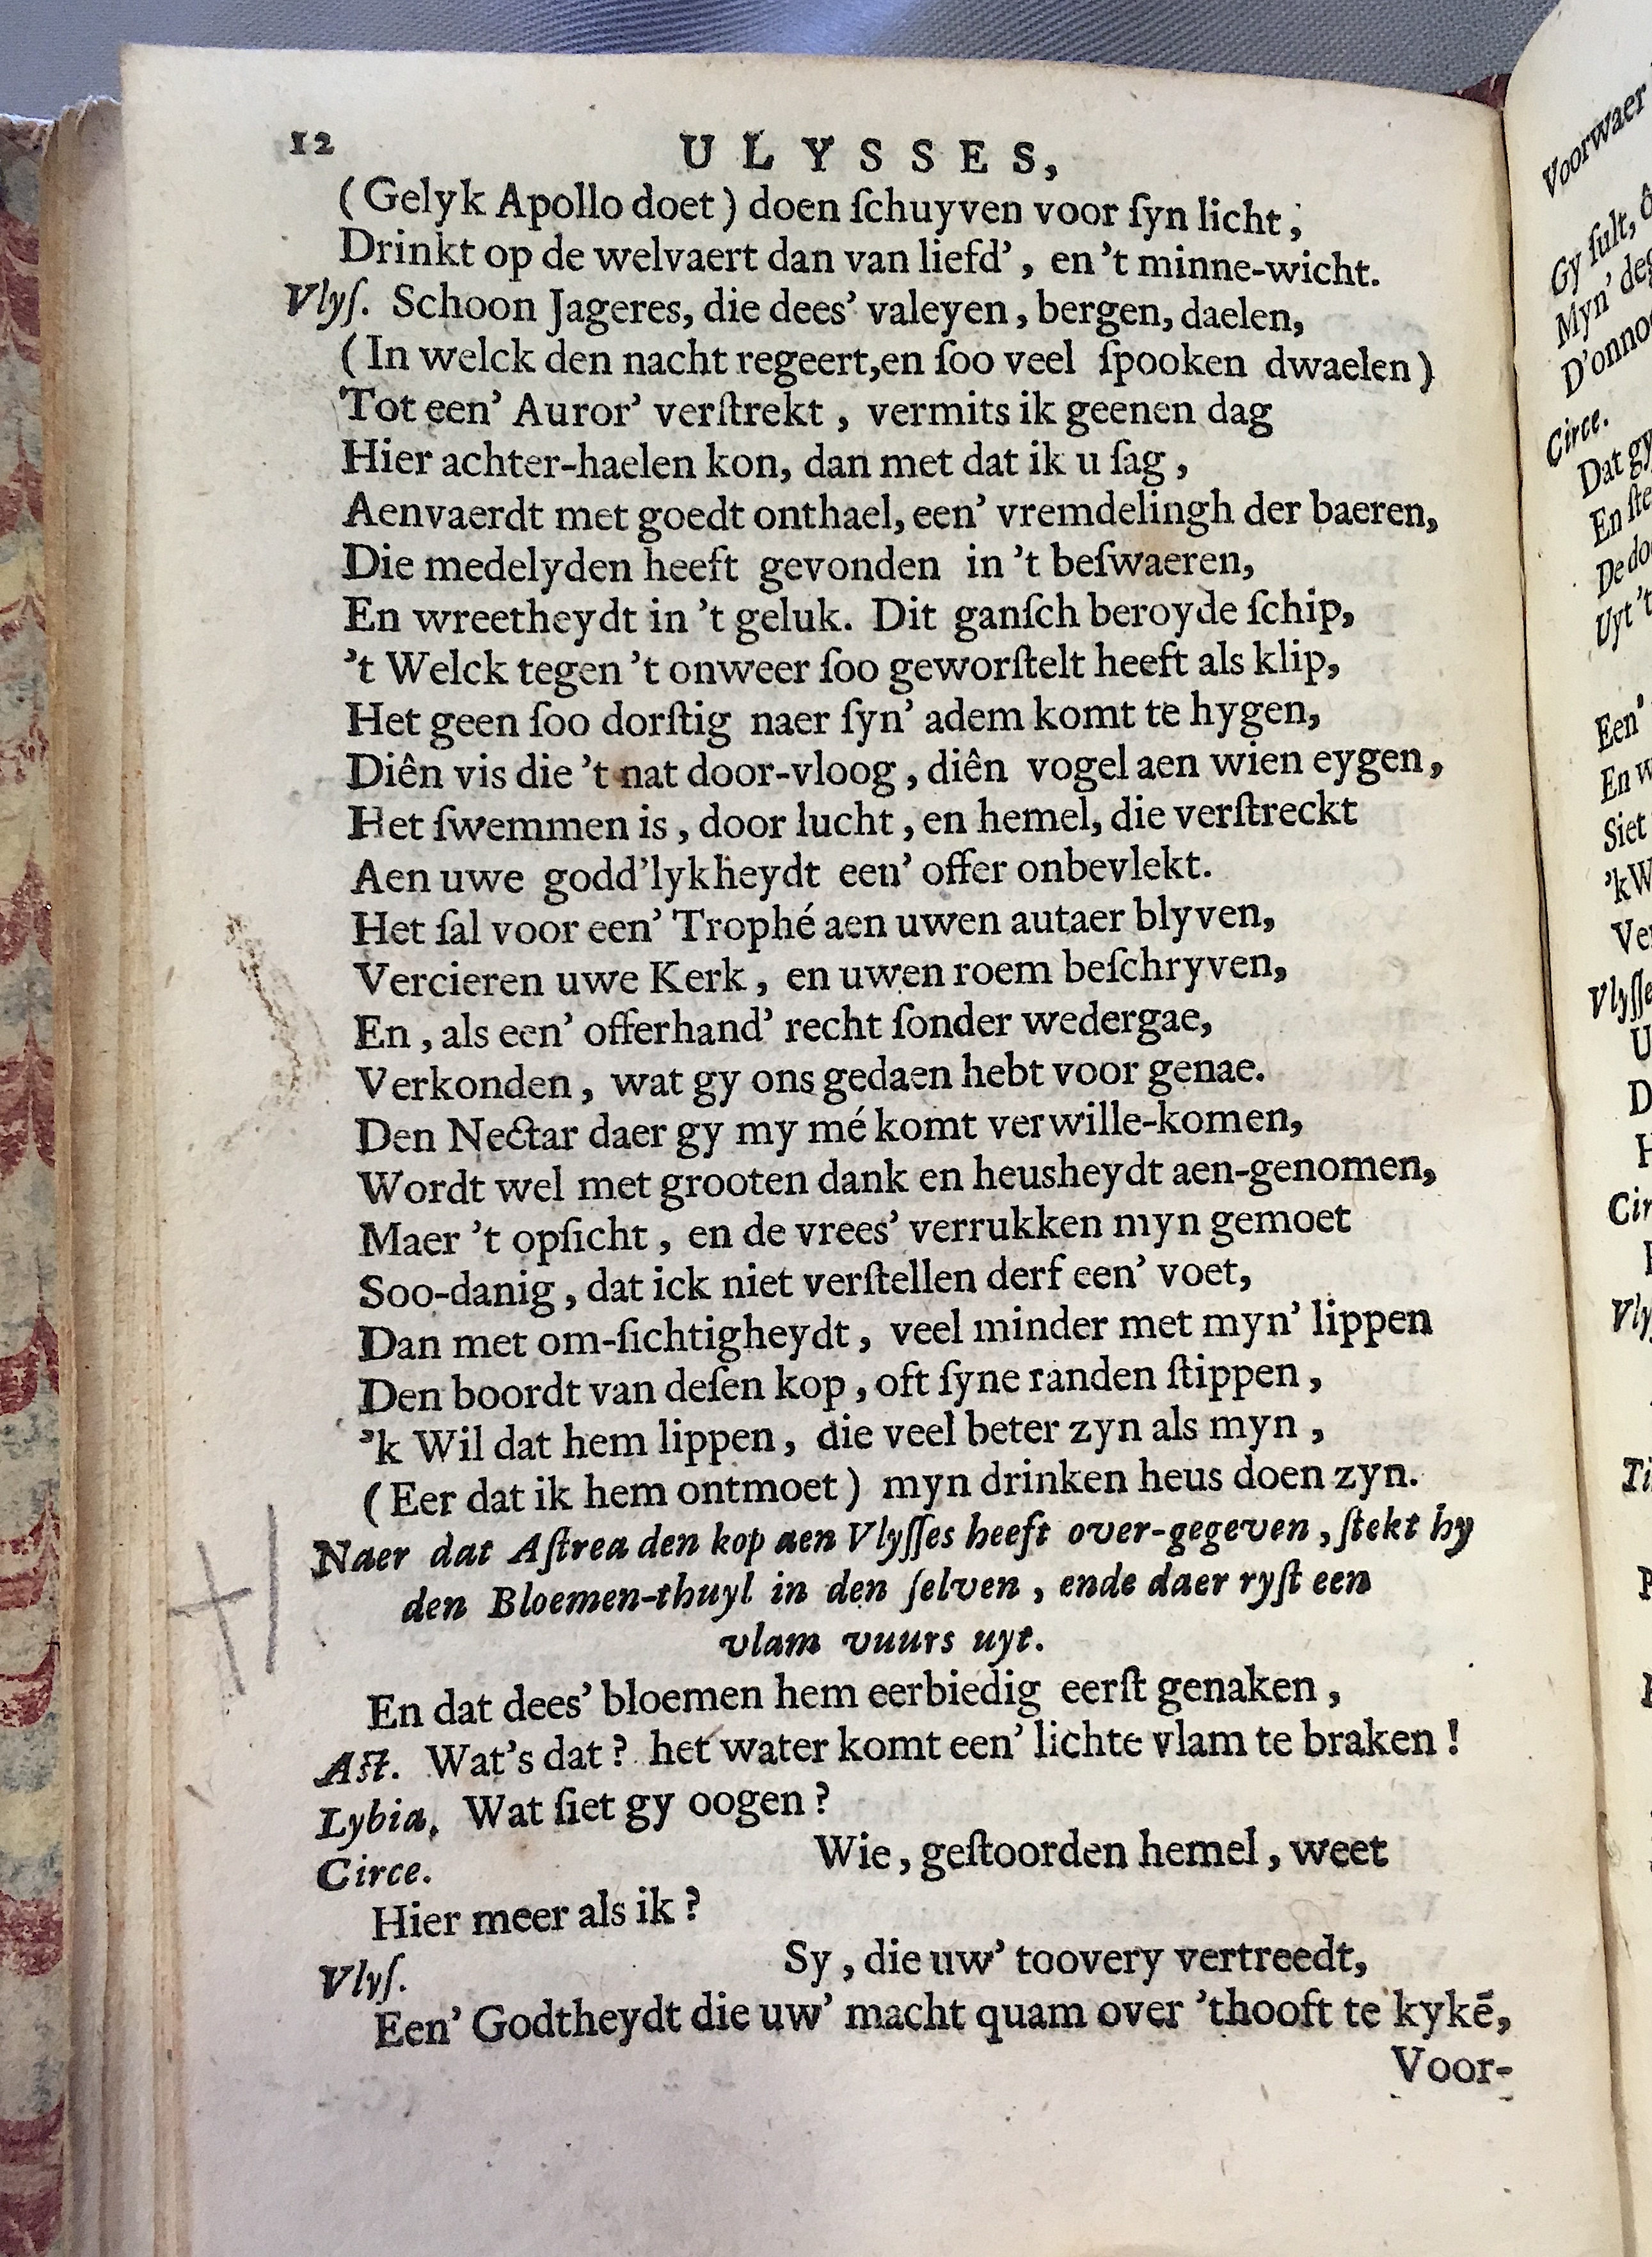 12
ULYSSES,
(Gelyk Apollo doet) doen ſchuyven voor ſyn licht;
Drinkt op de welvaert dan van liefd', en 't minne-wicht.
Vlyſ. Schoon Jageres, die dees' valeyen, bergen, daelen,
(In welck den nacht regeert, en ſoo veel ſpooken dwaelen)
Tot een' Auror' verſtrekt, vermits ik geenen dag
Hier achter-haelen kon, dan met dat ik u ſag,
Aenvaerdt met goedt onthael, een' vremdelingh der baeren,
Die medelyden heeft gevonden in 't beſwaeren,
En wreetheydt in 't geluk. Dit ganſch beroyde ſchip,
't Welck tegen 't onweer ſoo geworſtelt heeft als klip,
Het geen ſoo dorſtig naer ſyn' adem komt te hygen,
Diên vis die 't nat door-vloog, diên vogel aen wien eygen,
Het ſwemmen is, door lucht, en hemel, die verſtreckt
Aen uwe godd'lykheydt een' offer onbevlekt.
Het ſal voor een' Trophé aen uwen autaer blyven,
Vercieren uwe Kerk, en uwen roem beſchryven,
En, als een' offerhand' recht ſonder wedergae,
Verkonden, wat gy ons gedaen hebt voor genae.
Den Nectar daer gy my mé komt verwille-komen,
Wordt wel met grooten dank en heusheydt aen-genomen,
Maer 't opſicht, en de vrees' verrukken myn gemoet
Soo-danig, dat ick niet verſtellen derf een' voet,
Dan met om-ſichtigheydt, veel minder met myn' lippen
Den boordt van deſen kop, oft ſyne randen ſtippen,
'k Wil dat hem lippen, die veel beter zyn als myn,
(Eer dat ik hem ontmoet) myn drinken heus doen zyn.
Naer dat Aſtrea den kop aen Vlyſſes heeft over-gegeven, ſtekt hy
den Bloemen-thuyl in den ſelven, ende daer ryſt een
vlam vuurs uyt.
En dat dees' bloemen hem eerbiedig eerſt genaken,
Aſt. Wat's dat? het water komt een' lichte vlam te braken!
Lybia. Wat ſiet gy oogen?
Circe. Wie, geſtoorden hemel, weet
Hier meer als ik?
Vlyſ. Sy, die uw' toovery vertreedt,
Een' Godtheydt die uw' macht quam over 'thooft te kykē,
Voor-
Voorwaer
Gy ſult, ô
Myn'
D'onno
Circe.
Dat gy
En ſte
De do
Uyt 't
Een'
En w
Siet
'k W
Ver
Vlyſſe
U
D
H
Cir
Vly
Ti